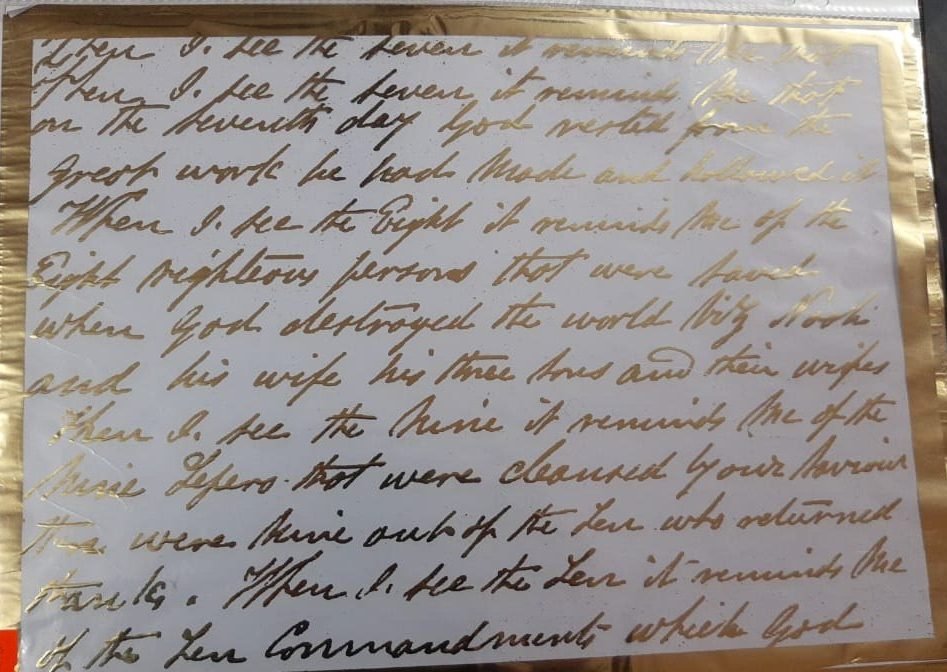 When I. see the seven it reminds me that
When I. see the seven it reminds Me that
on the seventh day God rested from the
great work he had Made and hallowed it
When I. see the Eight it reminds Me of the
Eight righteous persons that were saved
when God destroyed the world Viz Noah
and his wife his three sons and their wifes
When I. see the Nine it reminds Me of the
Nine Lepers that were cleansed by our Saviour
there were Nine out of the Ten who returned
thanks. When I. see the Ten it reminds Me
of the Ten Commandments which God